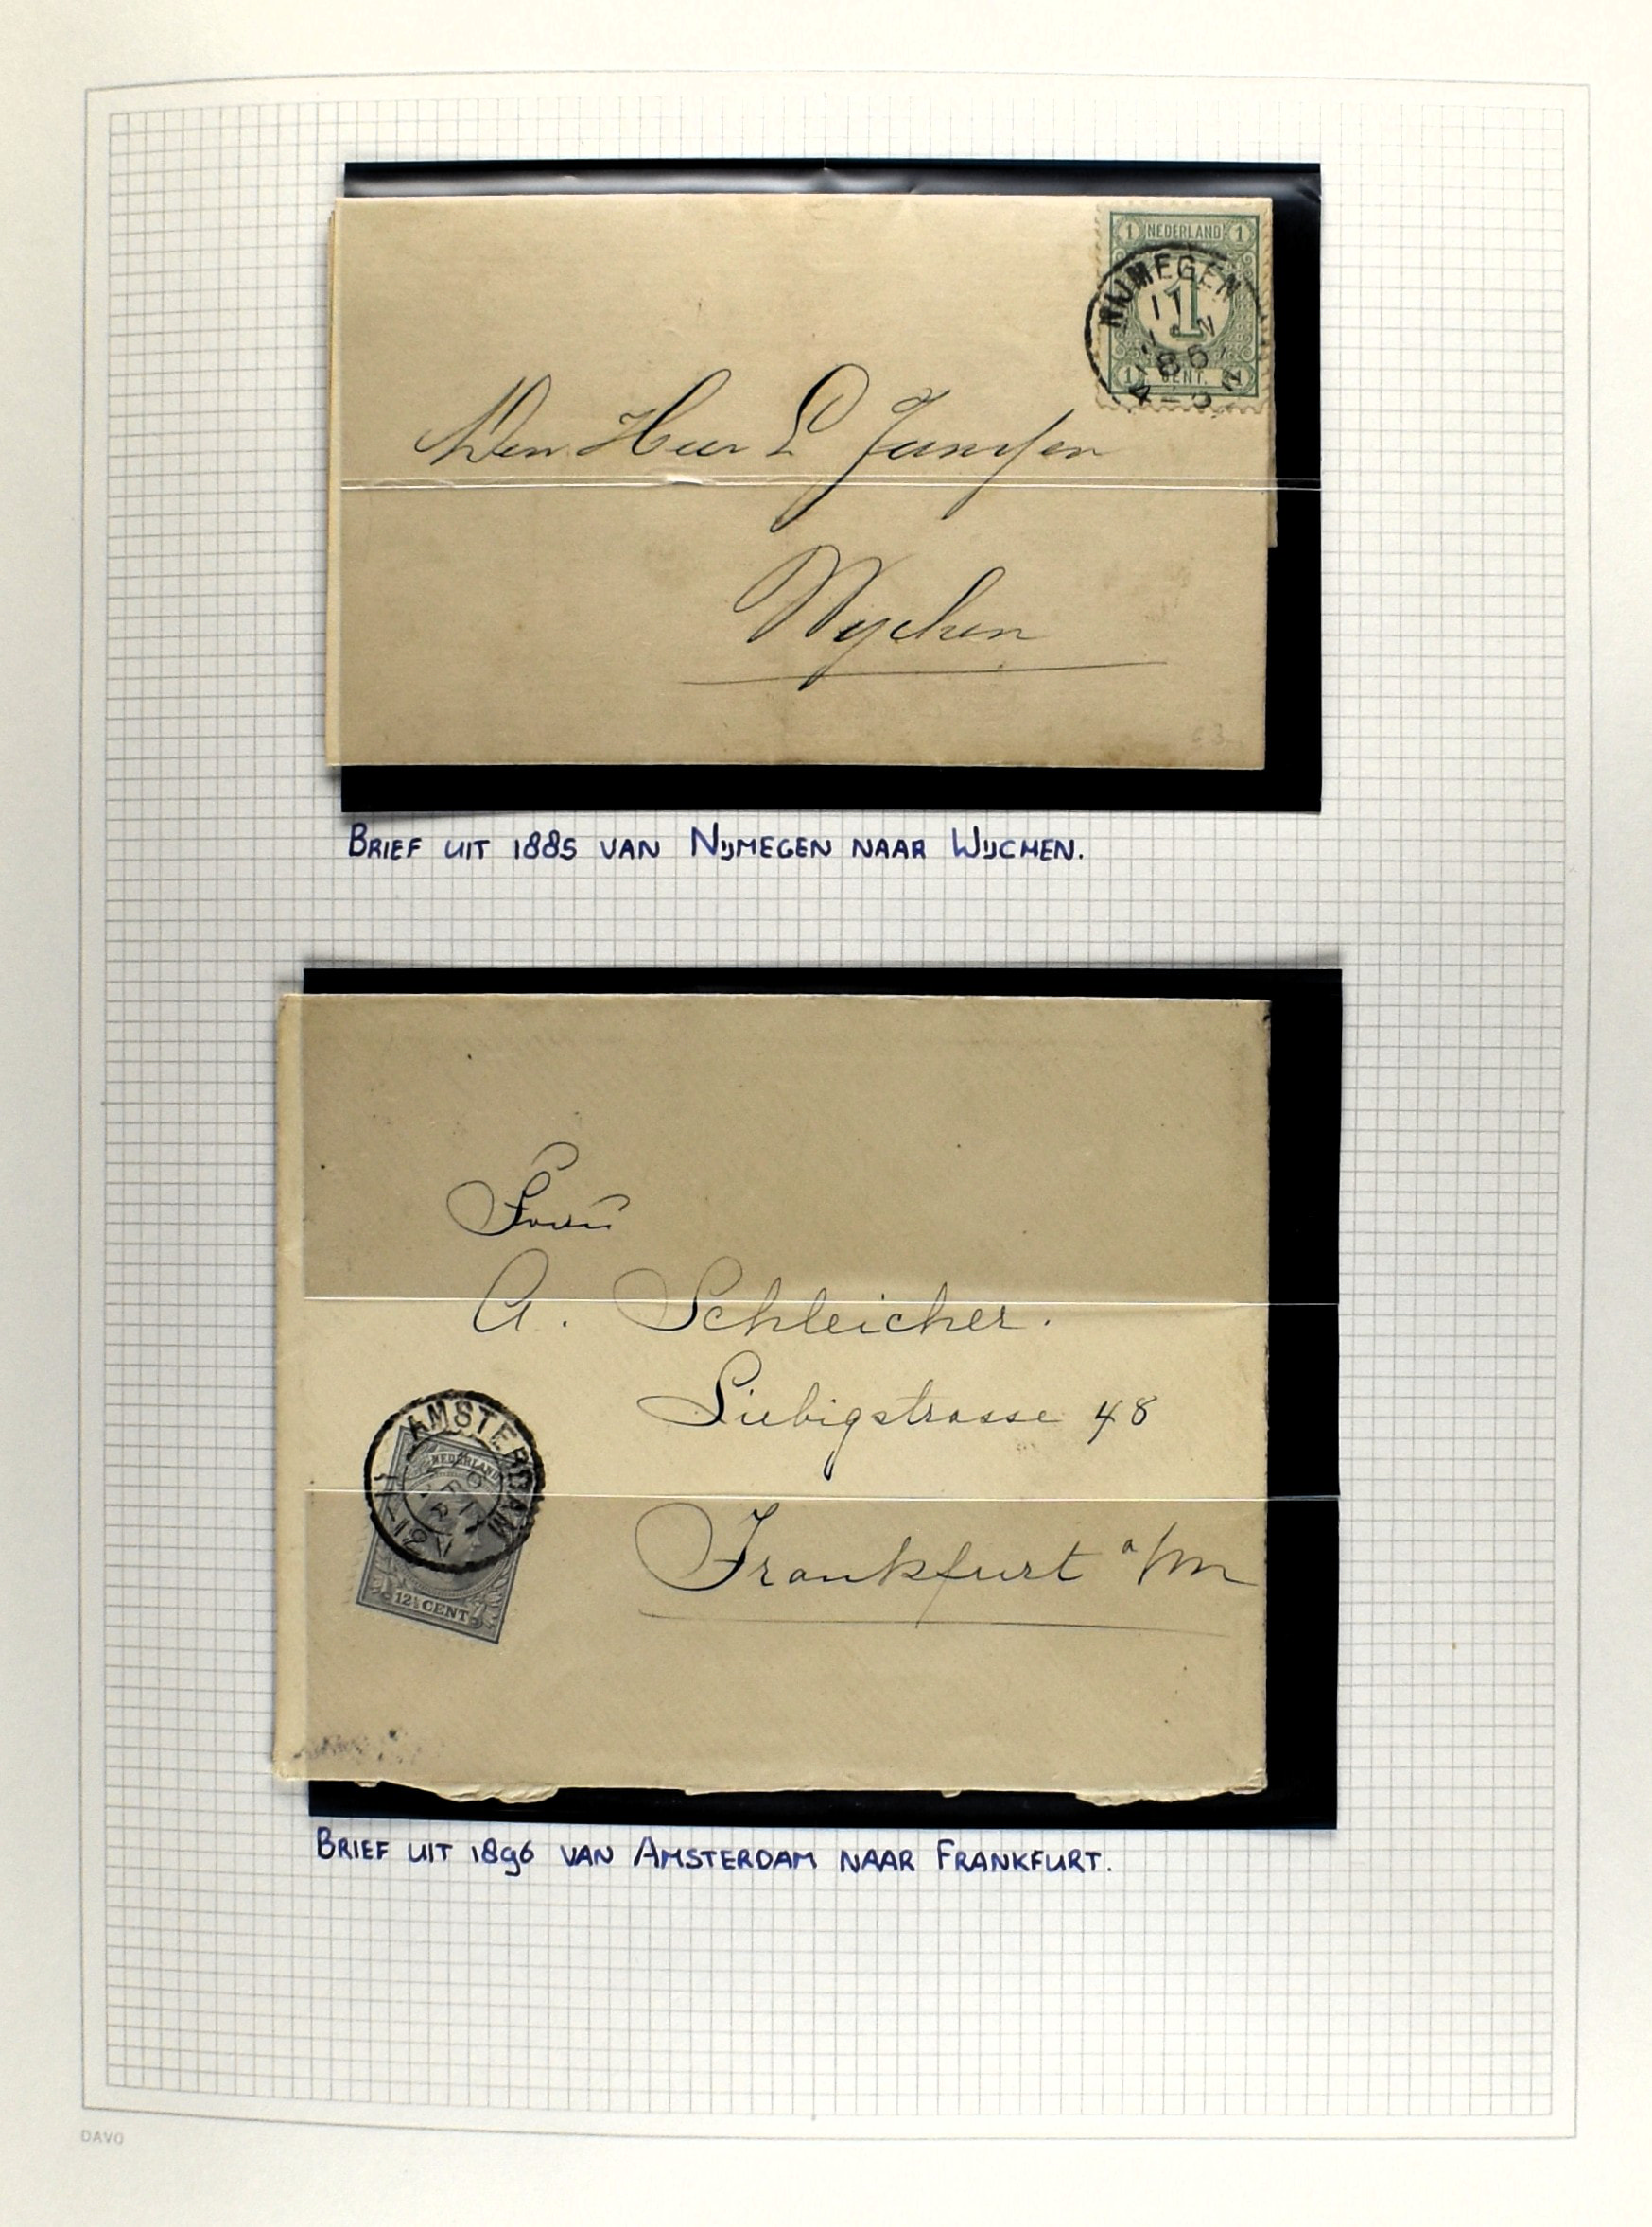 1 NEDERLAND 1
NIJMEGEN
1
86
4-5 N
1 CENT. 1
Den Heer L Janssen
Wychen
63
BRIEF UIT 1885 VAN NIJMEGEN NAAR WIJCHEN.
A. Schleicher.
Liebigstrasse 48
AMSTERDAM
NEDERLAND
12-1 N
12½ CENT
Frankfurt a/M
BRIEF UIT 1896 VAN AMSTERDAM NAAR FRANKFURT.
DAVO